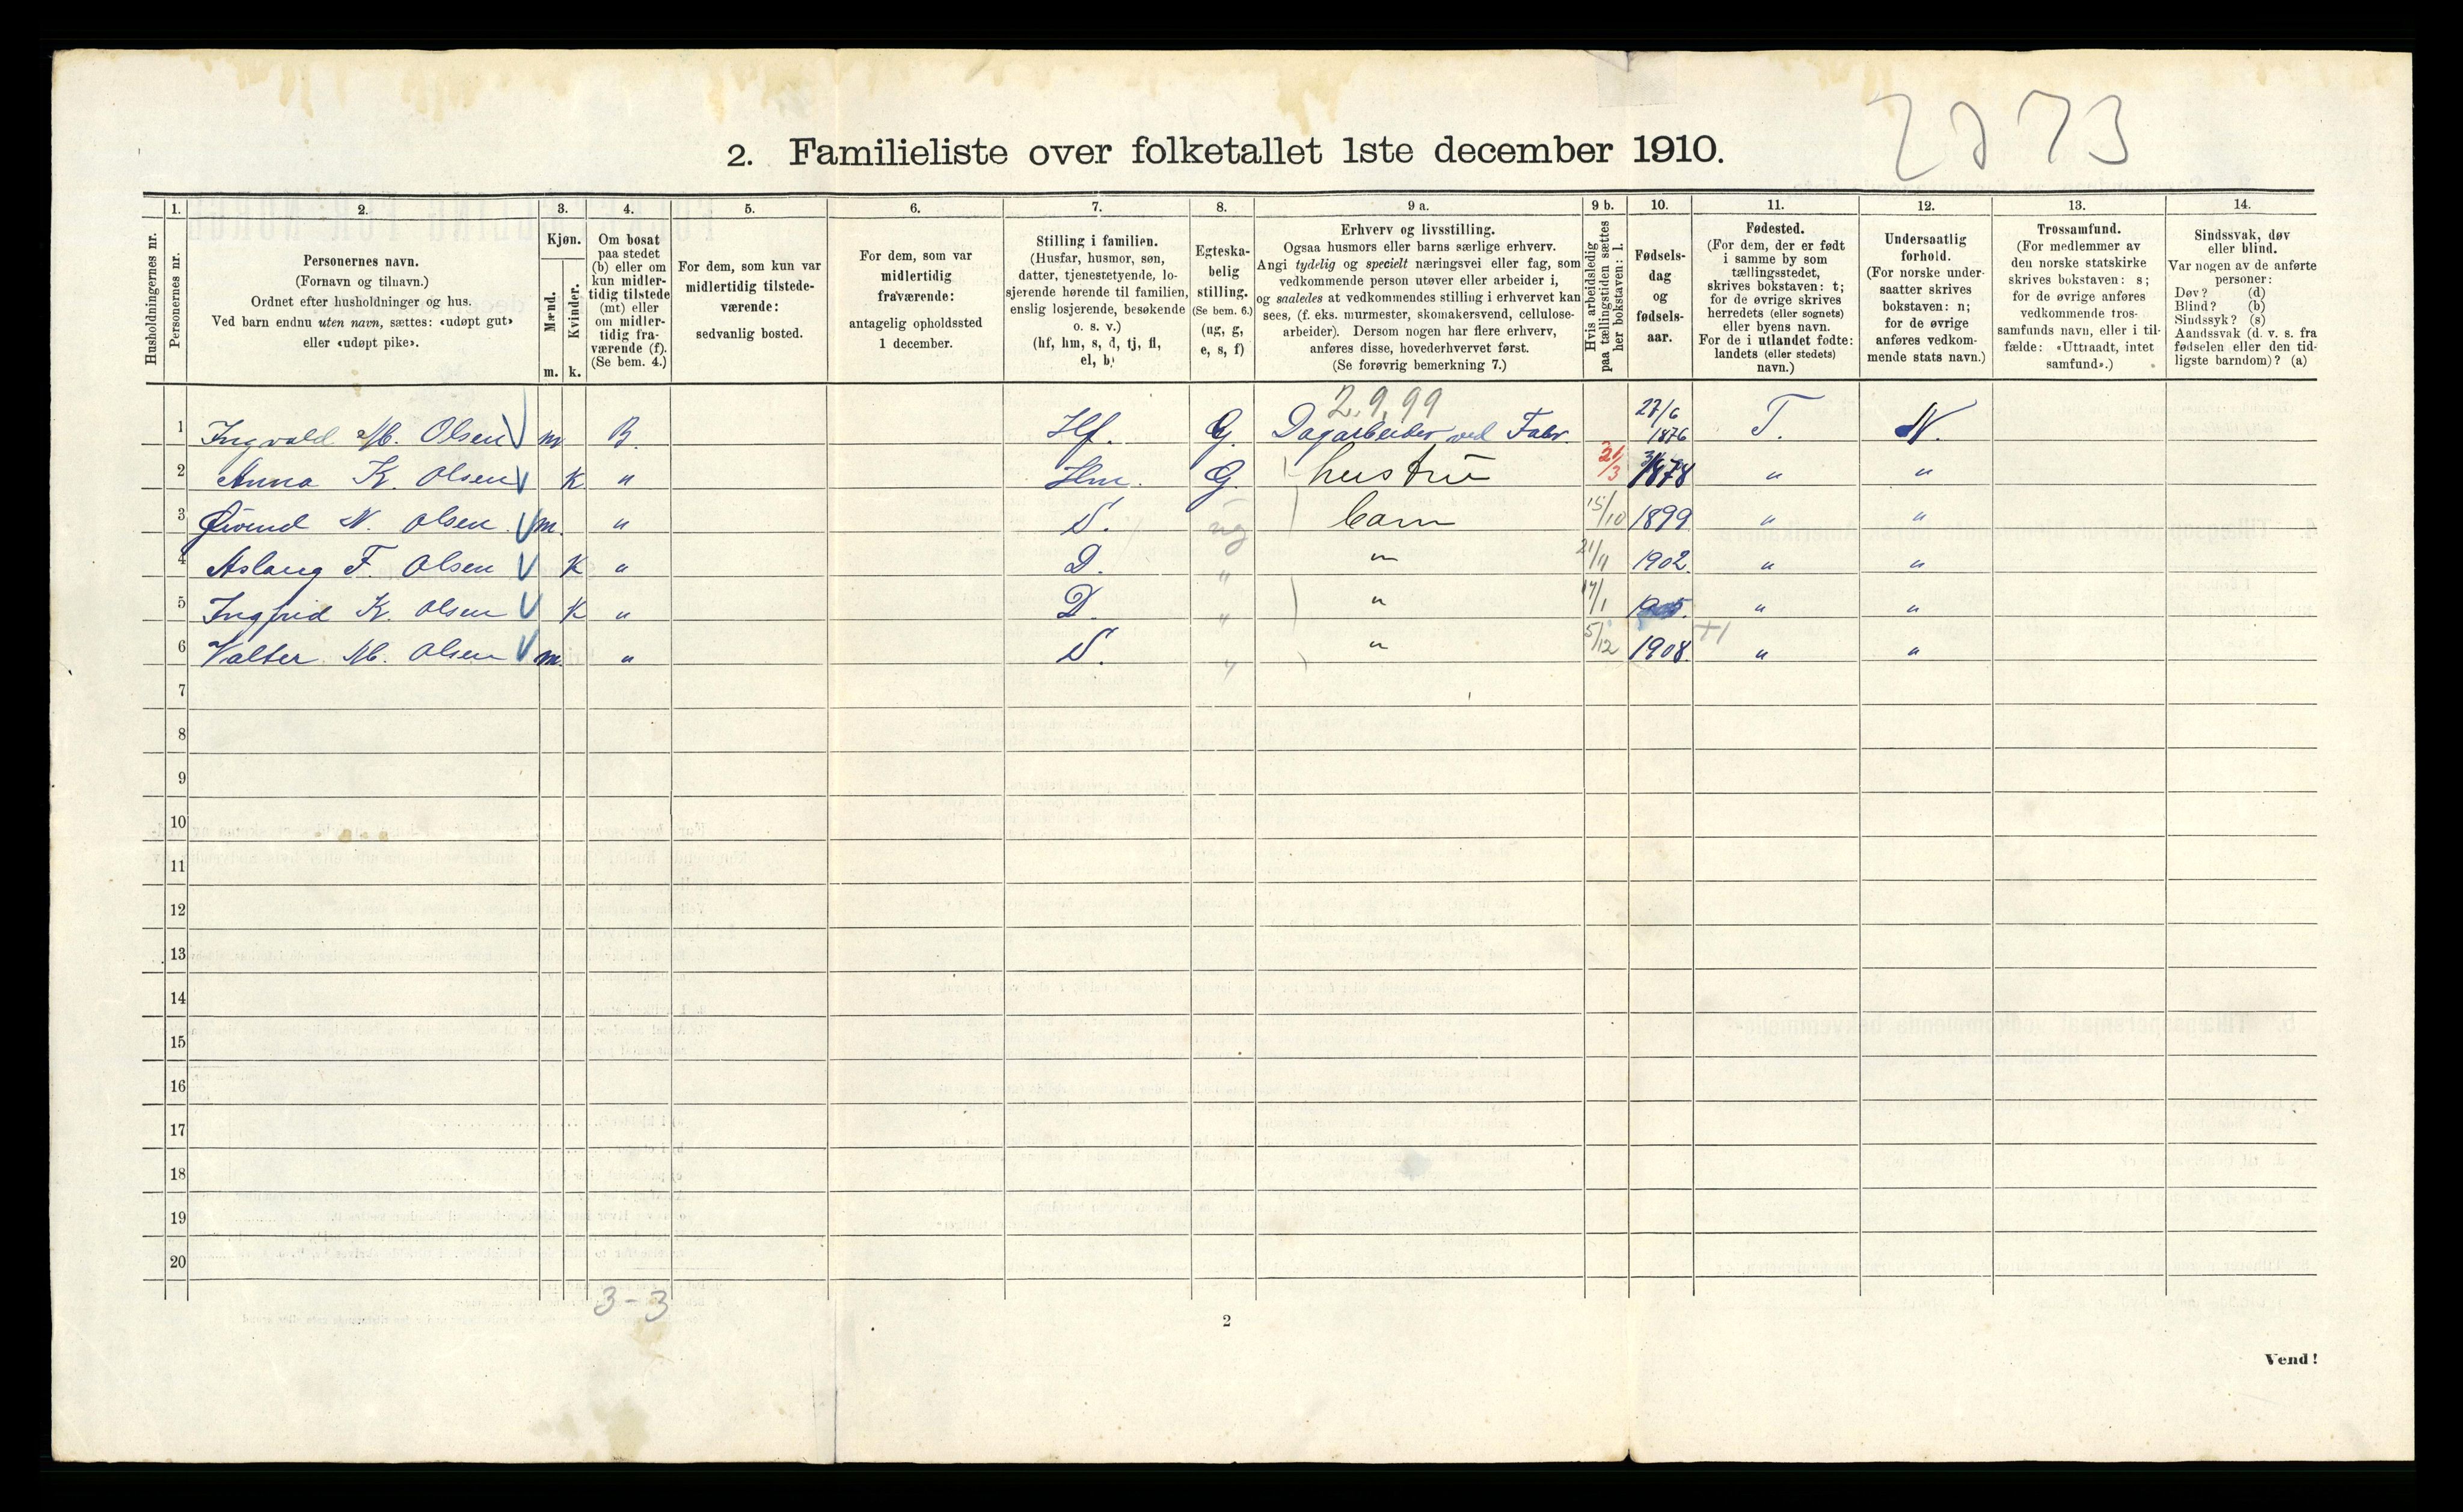 2. Familieliste over folketallet 1ste december 1910.
1. 2. 3. 4. 5. 6. 7. 8. 9 a. 9 b. 10. 11. 12. 13. 14.
Husholdningernes nr.
Personernes nr.
Personernes navn.
(Fornavn og tilnavn.)
Ordnet efter husholdninger og hus.
Ved barn endnu uten navn, sættes: «udøpt gut»
eller «udøpt pike».
Kjøn.
Mænd.
Kvinder.
m. k.
Om bosat
paa stedet
(b) eller om
kun midler-
tidig tilstede
(mt) eller
om midler-
tidig fra-
værende (f).
(Se bem. 4.)
For dem, som kun var
midlertidig tilstede-
værende:
sedvanlig bosted.
For dem, som var
midlertidig
fraværende:
antagelig opholdssted
1 december.
Stilling i familien.
(Husfar, husmor, søn,
datter, tjenestetyende, lo-
sjerende hørende til familien,
enslig losjerende, besøkende
o. s. v.)
(hf, hm, s, d, tj, fl,
el, b)
Egteska-
belig
stilling.
(Se bem. 6.)
(ug, g,
e, s, f)
Erhverv og livsstilling.
Ogsaa husmors eller barns særlige erhverv.
Angi tydelig og specielt næringsvei eller fag, som
vedkommende person utøver eller arbeider i,
og saaledes at vedkommendes stilling i erhvervet kan
sees, (f. eks. murmester, skomakersvend, cellulose-
arbeider). Dersom nogen har flere erhverv,
anføres disse, hovederhvervet først.
(Se forøvrig bemerkning 7.)
Hvis arbeidsledig
paa tællingstiden sættes
her bokstaven: l.
Fødsels-
dag
og
fødsels-
aar.
Fødested.
(For dem, der er født
i samme by som
tællingsstedet,
skrives bokstaven: t;
for de øvrige skrives
herredets (eller sognets)
eller byens navn.
For de i utlandet fødte:
landets (eller stedets)
navn.)
Undersaatlig
forhold.
(For norske under-
saatter skrives
bokstaven: n;
for de øvrige
anføres vedkom-
mende stats navn.)
Trossamfund.
(For medlemmer av
den norske statskirke
skrives bokstaven: s;
for de øvrige anføres
vedkommende tros-
samfunds navn, eller i til-
fælde: «Uttraadt, intet
samfund».)
Sindssvak, døv
eller blind.
Var nogen av de anførte
personer:
Døv? (d)
Blind? (b)
Sindssyk? (s)
Aandssvak (d. v. s. fra
fødselen eller den tid-
ligste barndom)? (a)
2.9.99
1 Ingvald M. Olsen m B. Hf. G. Dagarbeider ved Fabr. 27/6 1876 T. N.
2 Anna K. Olsen K " Hm. G. hustru 21/3 1878 " "
3 Øivind N. Olsen m. " S. ug barn 15/10 1899 " "
4 Aslaug F. Olsen K " D. " " 21/11 1902. " "
5 Ingfrid K. Olsen K " D. " " 14/1 1905. " "
6 Valter M. Olsen m. " S. " " 5/12 1908. +1 " "
7
8
9
10
11
12
13
14
15
16
17
18
19
20
3-3
2
Vend!